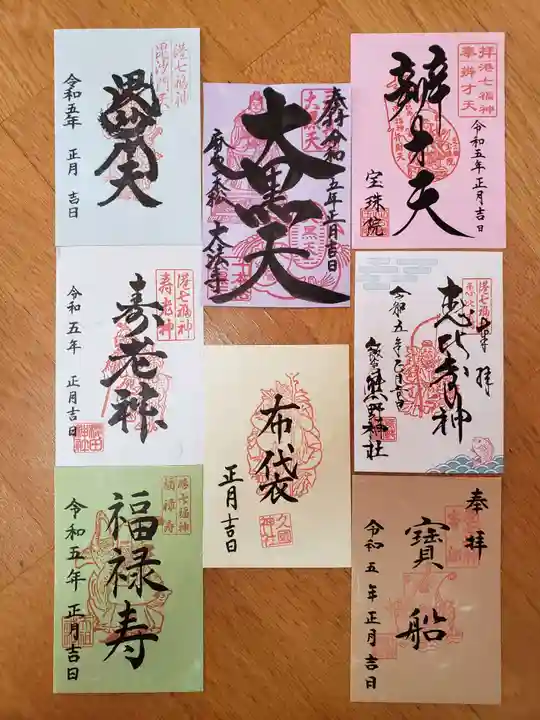 港七福神
毘沙門天
毘沙門天
令和五年 正月 吉日
奉拝 令和五年正月吉日
大黒天
大黒天
麻布一本松 大法寺
拝港七福神
奉辨才天
辨才天
令和五年正月吉日
宝珠院
港七福神
寿老神
寿老神
令和五年 正月吉日
布袋
正月吉日
久國神社
港七福神
奉拝
恵比寿神
令和五年正月吉日
熊野神社
港七福神
福禄寿
福禄寿
令和五年 正月吉日
奉拝
寳船
令和五年正月吉日